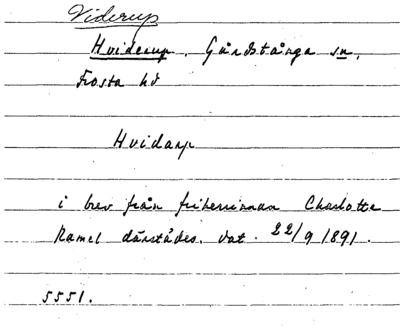 Viderup
Hviderup. Gårdstånga sn,
Frosta hd
Hvidarp
i brev från friherrinnan Charlotte
Ramel därstädes. dat. 22/9 1891.
5551.